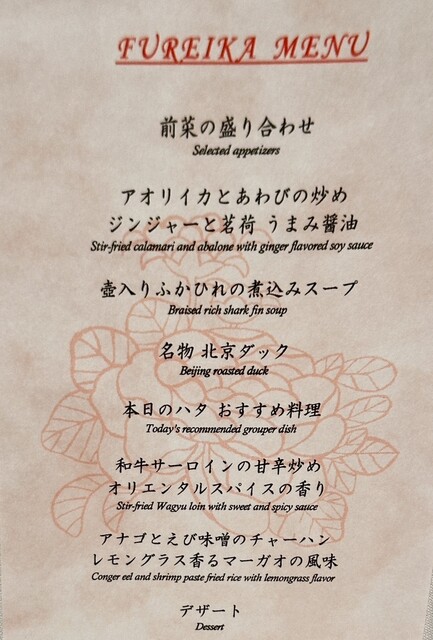 FUREIKA MENU
前菜の盛り合わせ
Selected appetizers
アオリイカとあわびの炒め
ジンジャーと茗荷 うまみ醤油
Stir-fried calamari and abalone with ginger flavored soy sauce
壺入りふかひれの煮込みスープ
Braised rich shark fin soup
名物 北京ダック
Beijing roasted duck
本日のハタ おすすめ料理
Today's recommended grouper dish
和牛サーロインの甘辛炒め
オリエンタルスパイスの香り
Stir-fried Wagyu loin with sweet and spicy sauce
アナゴとえび味噌のチャーハン
レモングラス香るマーガオの風味
Conger eel and shrimp paste fried rice with lemongrass flavor
デザート
Dessert